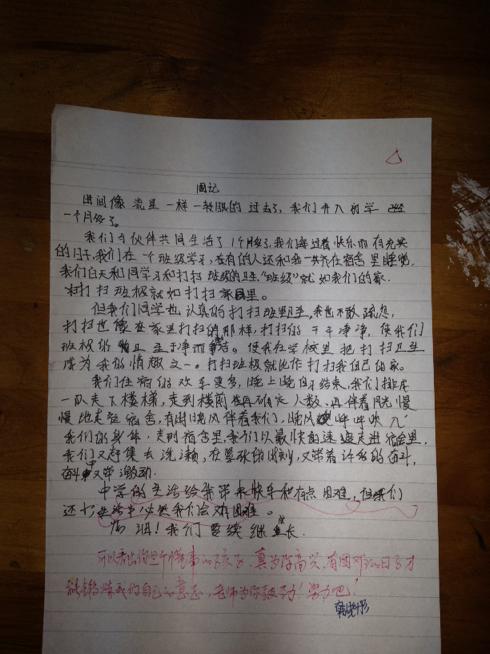 周记
时间像流星一样一转眼的过去了,我们升入初学
一个月多了。
我们与伙伴共同生活了1个月多了,我们每过着快乐而有充实
的日子,我们在一个班级学习,也有的人还和我一共在宿舍里睡觉,
我们白天和同学习和打扫班级的卫生,"班级"就如我们的家,
打扫班级就如打扫家里。
但我们同学也认真的打扫班里卫生,我也不敢疏忽,
打扫也像在家里打扫的那样,打扫的干干净净,使我们
班级的干净而。使我在学校里把打扫卫生
成为我的情趣之一。打扫班级就比作打扫我自己的家。
我们住宿的欢乐更多,晚上晚自习结束,我们排成
一队走下楼梯,走到楼前也再确定人数,再伴着月光慢
慢地走在宿舍,有时晚风伴着我们,晚风呼呼吹
我们的身体,走到宿舍里,我们以最快的速度走进宿舍里,
我们又赶集去洗漱,在紧张的时刻,又带着许多的奋斗,
又带激动。
中学的生活给我带来快乐和有点困难,但我们
还
加油!我们要续继长。
可以看出你是个懂事的孩子,真为你高兴,有困难的日子才
能锻炼我们自己的意志,老师为你鼓劲!努力吧!